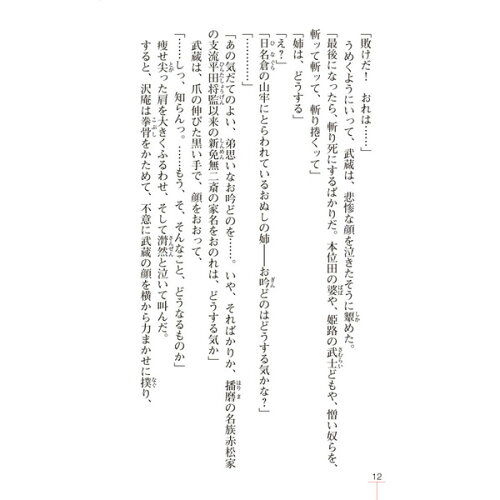 「敗けだ！　おれは……」
うめくようにいって、武蔵は、悲惨な顔を泣きたそうに顰めた。
「最後になったら、斬り死にするばかりだ。本位田の婆や、姫路の武士どもや、憎い奴らを、
斬って斬って、斬り捲くって」
「姉は、どうする」
「え？」
「日名倉の山牢にとらわれているおぬしの姉――お吟どのはどうする気かな？」
「………」
「あの気だてのよい、弟思いなお吟どのを……。いや、そればかりか、播磨の名族赤松家
の支流平田将監以来の新免無二斎の家名をおのれは、どうする気か」
武蔵は、爪の伸びた黒い手で、顔をおおって、
「……しっ、知らんっ。……もう、そ、そんなこと、どうなるものか」
痩せ尖った肩を大きくふるわせ、そして潸然と泣いて叫んだ。
すると、沢庵は拳骨をかためて、不意に武蔵の顔を横から力まかせに撲り、
12